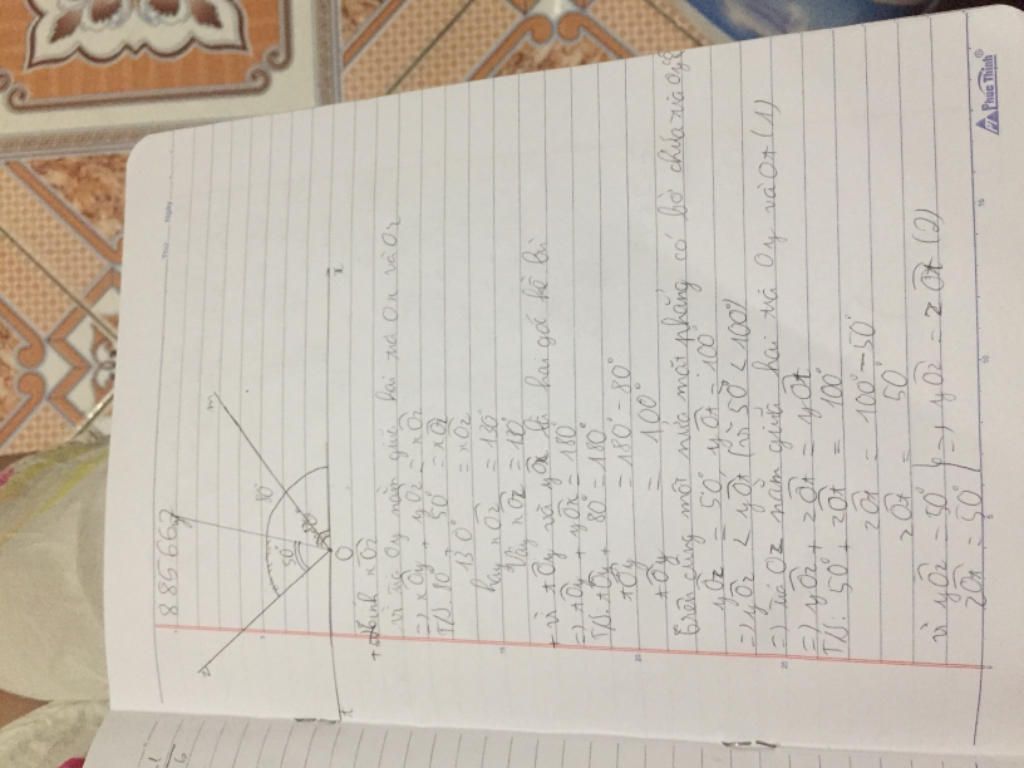 8856667
Thứ Ngày
m
z
80°
50°
O
x
t
+ Tính xOz
vì tia Oy nằm giữa hai tia Ox và Oz
=) xOy + yOz = xOz
T/S: 80° + 50° = xOz
130° = xOz
hay xOz = 130°
Vậy xOz = 130°
+ vì tOy và yOx là hai góc kề bù
=) tOy + yOx = 180°
T/S: tOy + 80° = 180°
tOy = 180° - 80°
tOy = 100°
Trên cùng một nửa mặt phẳng có bờ chứa tia
yOz = 50°, yOt = 100°
=) yOz < yOt (vì 50° < 100°)
=) tia Oz nằm giữa hai tia Oy và Ot (1)
=) yOz + zOt = yOt
T/S: 50° + zOt = 100°
zOt = 100° - 50°
zOt = 50°
vì yOz = 50°
zOt = 50° =) yOz = zOt (2)
Phúc Thịnh